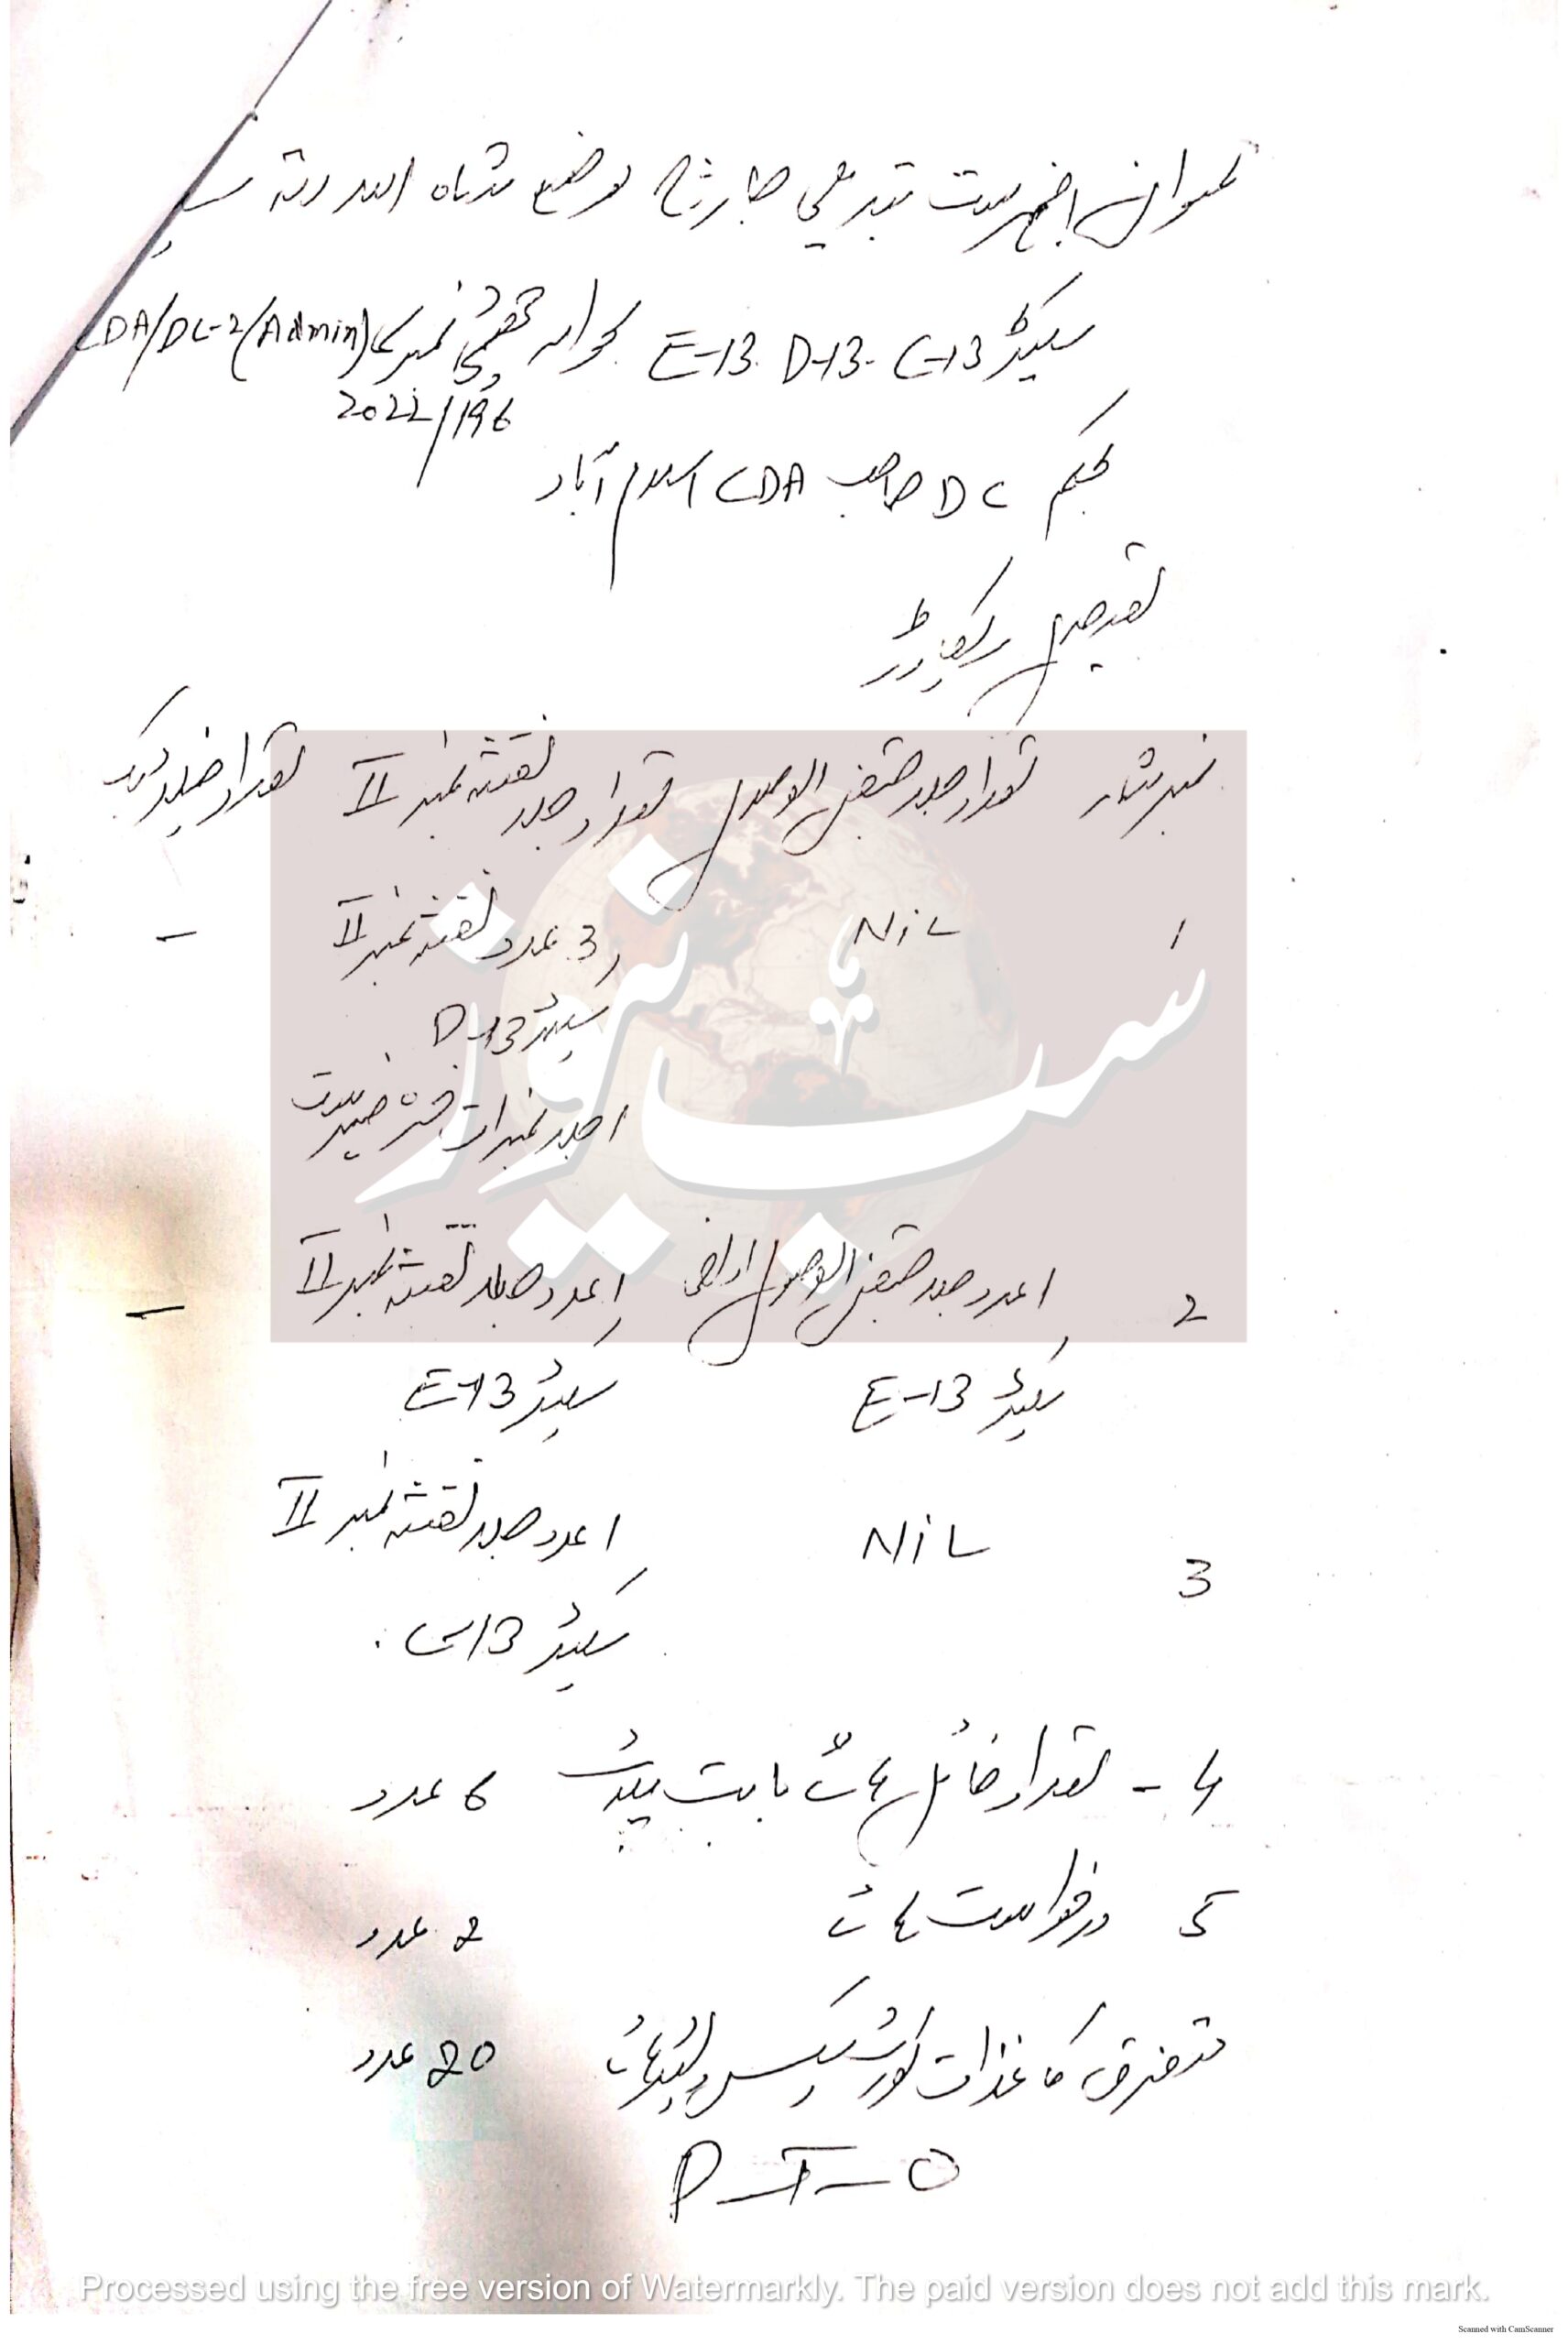 عنوان فہرست تبدیلی چارج موضع شاہ اللہ دتہ
سیکٹر C-13 - D-13 . E-13 بحوالہ چٹھی نمبر CDA/DC-2(Admin)
2022/196
بحکم DC صاحب CDA اسلام آباد
تفصیل ریکارڈ
نمبر شمار تعداد جلد قبض الوصول تعداد جلد نقشہ نمبر II تعداد فیلڈ بک
1 Nil 3 عدد نقشہ نمبر II –
سیکٹر D-13
1 جلد نمبرات خسرہ فہرست
2 1 عدد جلد قبض الوصول اراضی 1 عدد جلد نقشہ نمبر II –
سیکٹر E-13 سیکٹر E-13
3 Nil 1 عدد جلد نقشہ نمبر II
سیکٹر C-13
4 - تعداد فائل ہائے بابت 6 عدد
5 درخواست ہائے 2 عدد
متفرق کاغذات کورٹ کیس 20 عدد
P-T-O
سب نیوز
Processed using the free version of Watermarkly. The paid version does not add this mark.
Scanned with CamScanner